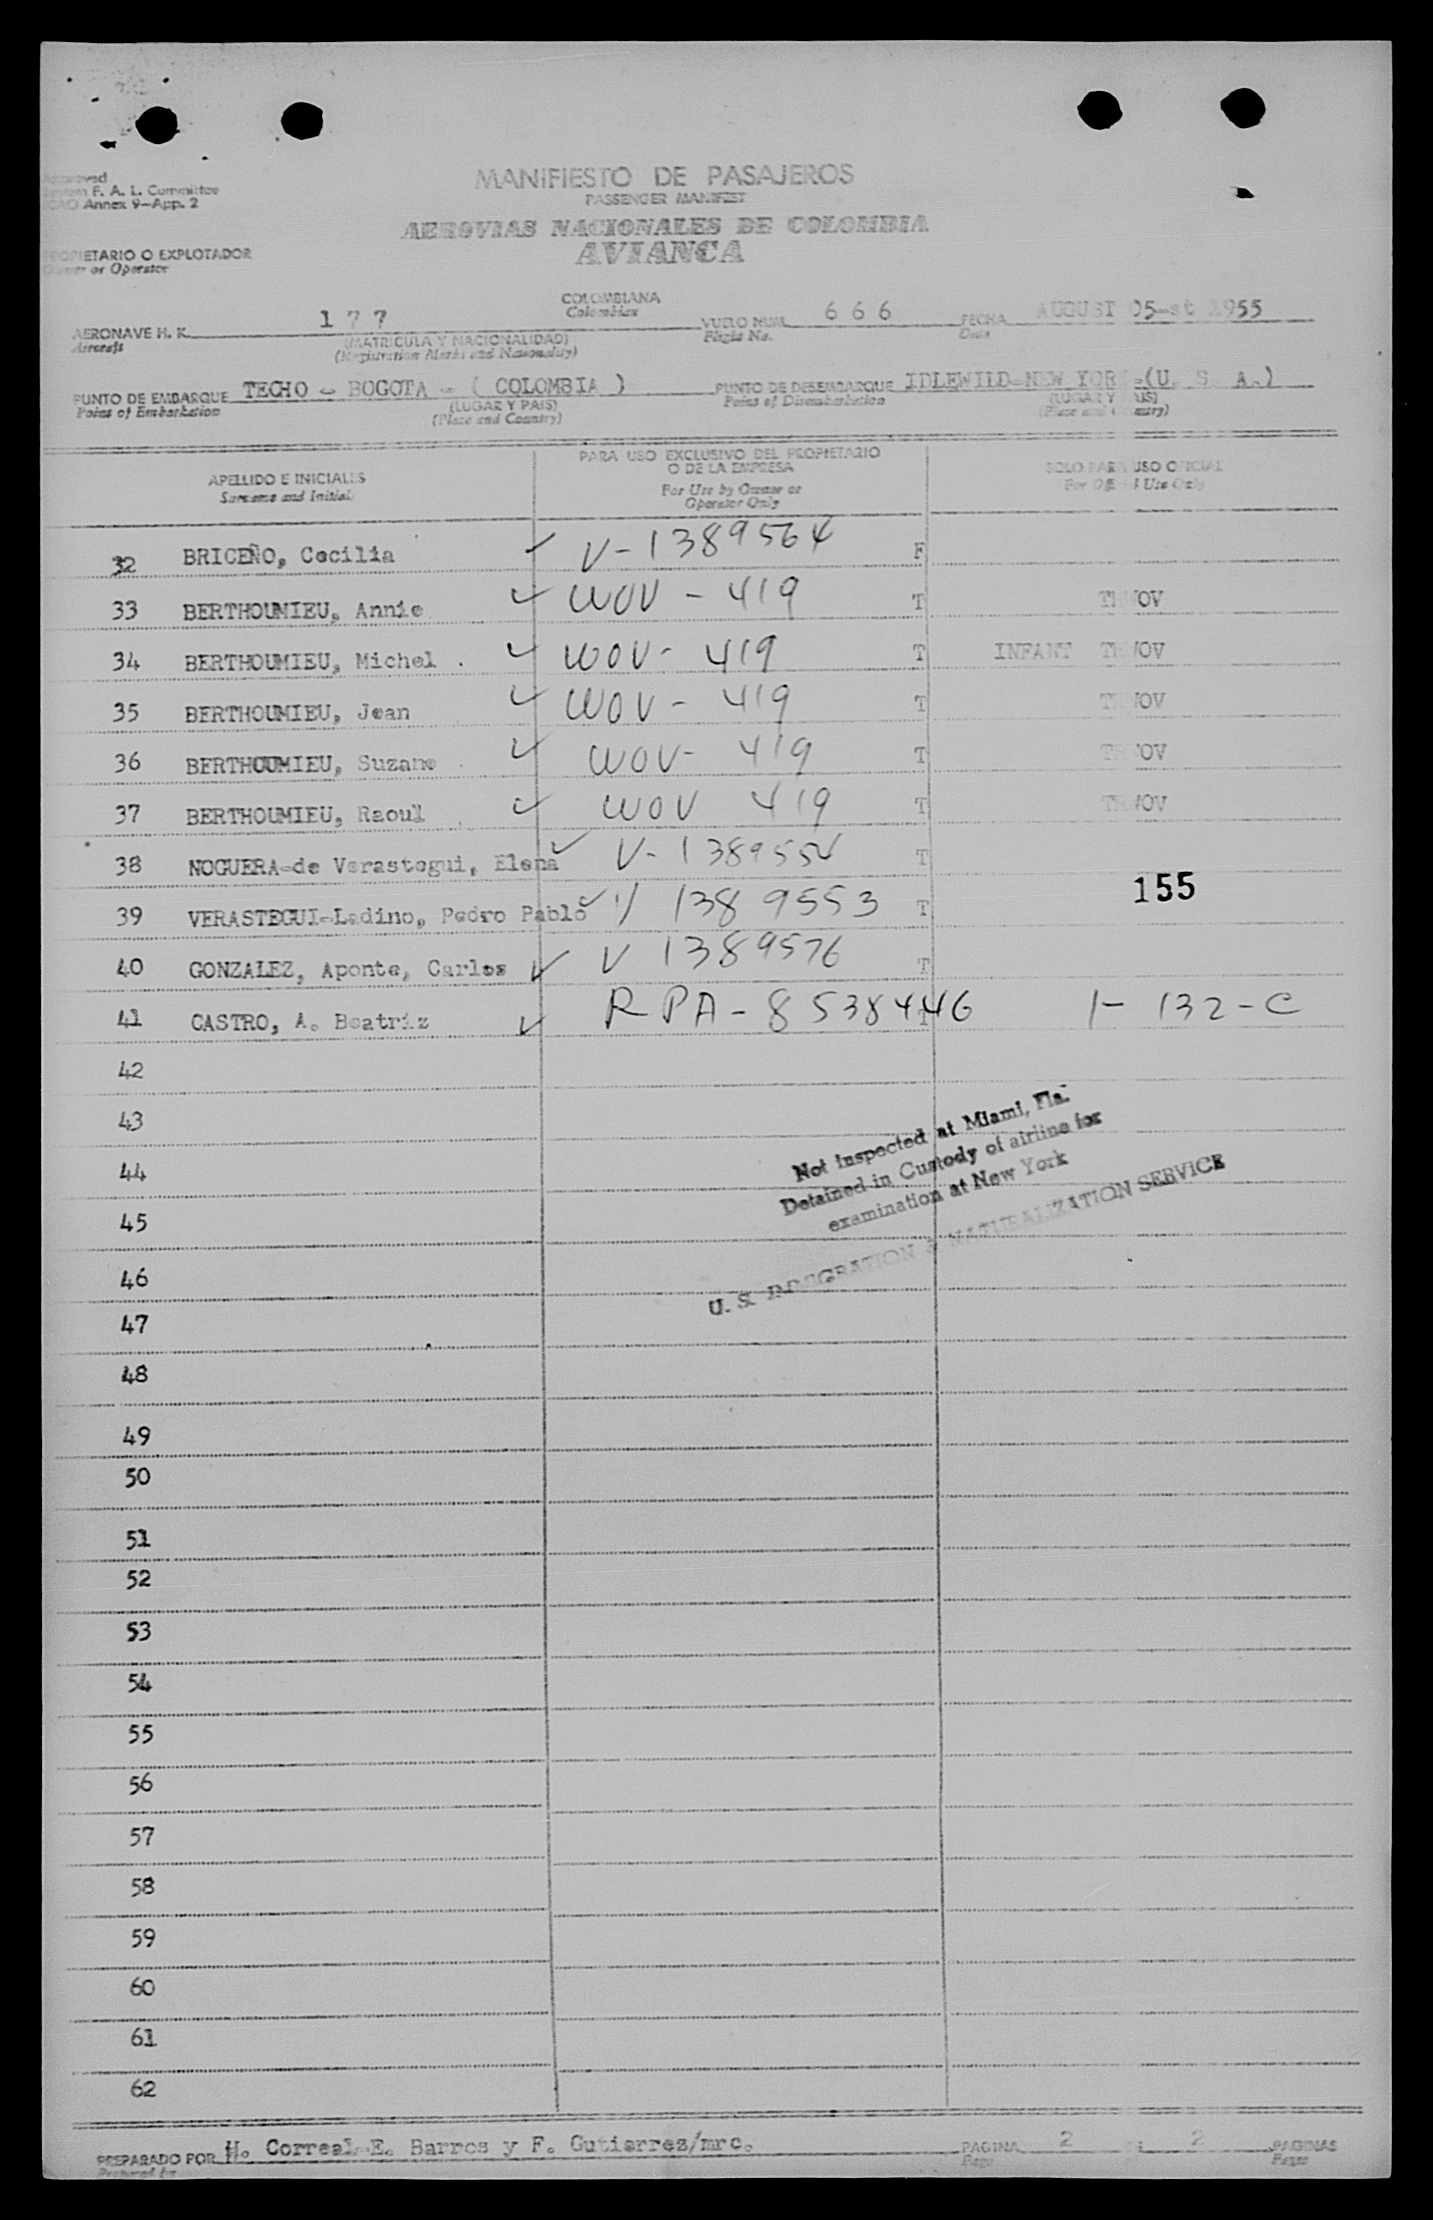 Approved
F. A. L. Committee
ICAO Annex 9-App. 2
MANIFIESTO DE PASAJEROS
PASSENGER MANIFEST
AEROVIAS NACIONALES DE COLOMBIA
AVIANCA
PROPIETARIO O EXPLOTADOR
Owner or Operator
AERONAVE H. K. 1 7 7 COLOMBIANA VUELO NUM. 6 6 6 FECHA AUGUST 05-st 1955
Aircraft (MATRICULA Y NACIONALIDAD) Colombian Flight No. Date
(Registration Marks and Nationality)
PUNTO DE EMBARQUE TECHO - BOGOTA - ( COLOMBIA ) PUNTO DE DESEMBARQUE IDLEWILD-NEW YOR -(U. S A.)
Point of Embarkation (LUGAR Y PAIS) Point of Disembarkation (LUGAR Y PAIS)
(Place and Country) (Place and Country)
APELLIDO E INICIALES
Surname and Initial
PARA USO EXCLUSIVO DEL PROPIETARIO
O DE LA EMPRESA
For Use by Owner or
Operator Only
SOLO PARA USO OFICIAL
For Official Use Only
32 BRICEÑO, Cecilia V-1389564 F
33 BERTHOUMIEU, Annie WOV - 419 T TRWOV
34 BERTHOUMIEU, Michel . WOV- 419 T INFANT TRWOV
35 BERTHOUMIEU, Jean WOV - 419 T TRWOV
36 BERTHOUMIEU, Suzane WOV- 419 T TRWOV
37 BERTHOUMIEU, Raoul WOV 419 T TRWOV
38 NOGUERA-de Verastegui, Elena V-1389554 T
39 VERASTEGUI-Ladino, Pedro Pablo V 1389553 T
155
40 GONZALEZ, Aponte, Carlos V 1389576 T
41 CASTRO, A. Beatriz RPA-8538446 T 1-132-C
42
43
44
45
46
47
48
49
50
51
52
53
54
55
56
57
58
59
60
61
62
Not Inspected at Miami, Fla.
Detained in Custody of airline for
examination at New York
U. S. IMMIGRATION & NATURALIZATION SERVICE
PREPARADO POR H. Correal-E. Barros y F. Gutierrez/mrc. PAGINA 2 2 PAGINAS
Prepared by Page Pages